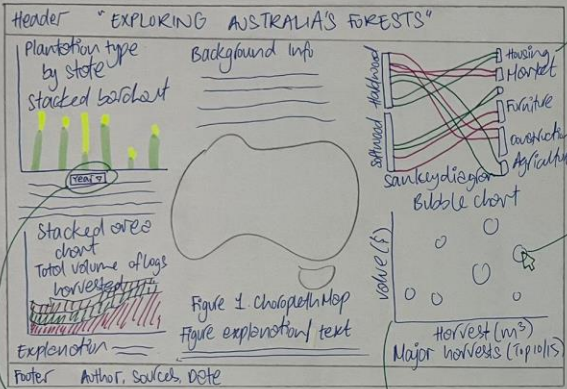 Header "EXPLORING AUSTRALIA'S FORESTS"
Plantation type
by state
Stacked barchart
Year
Stacked area
chart
Total volume of logs
harvested
Explanation
Background Info
Figure 1. Choropleth Map
Figure explanation/text
Softwood Hardwood
Housing
Market
Furniture
Construction
Agriculture
Sankey diagram
Bubble chart
Harvest (m³)
Major harvests (Top 10/15)
Footer Author, Sources, Date